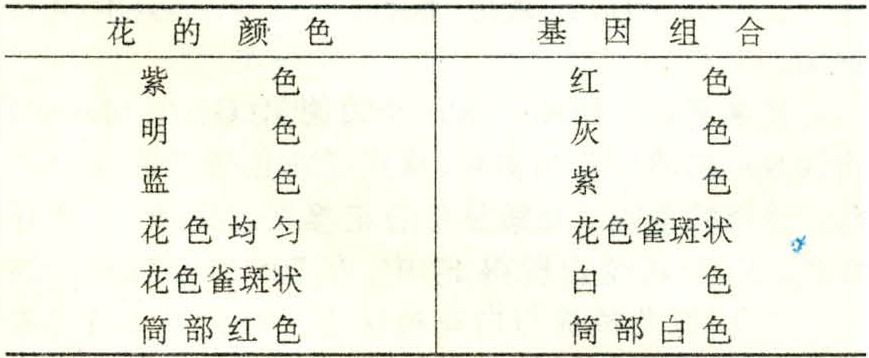 花的颜色 基因组合
紫色 红色
明色 灰色
蓝色 紫色
花色均匀 花色雀斑状
花色雀斑状 白色
筒部红色 筒部白色